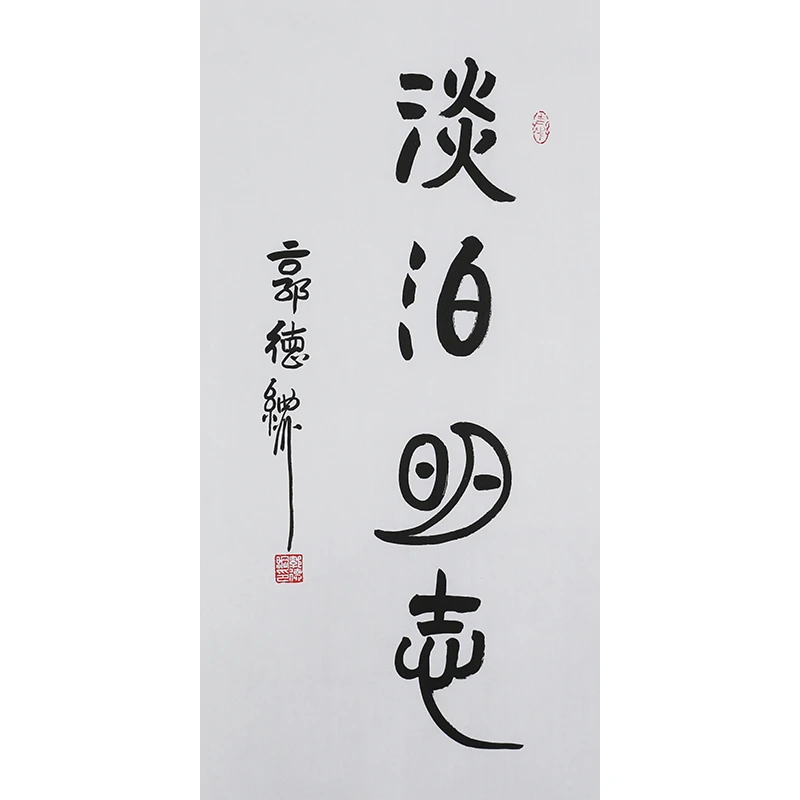 淡泊明志
郭德綱